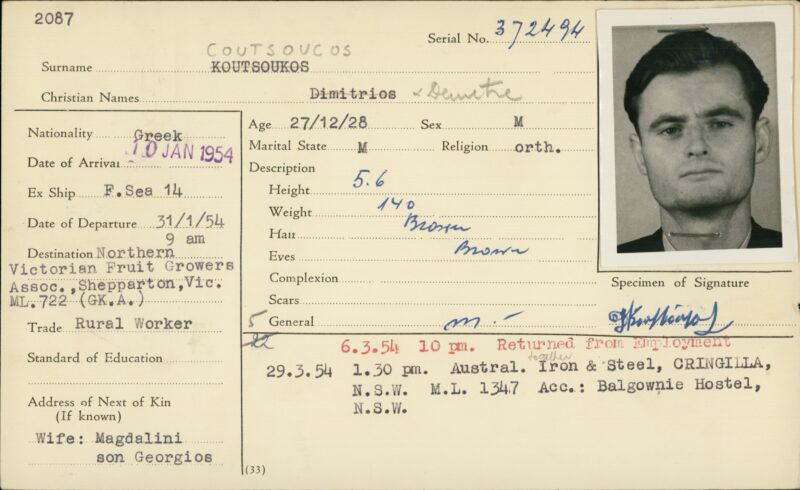 2087
Serial No. 372494
COUTSOUCOS
Surname KOUTSOUKOS
Christian Names Dimitrios
Nationality Greek
Date of Arrival 10 JAN 1954
Ex Ship F.Sea 14
Date of Departure 31/1/54
9 am
Destination Northern
Victorian Fruit Growers
Assoc.,Shepparton,Vic.
ML.722 (GK.A.)
Trade Rural Worker
Standard of Education
Address of Next of Kin
(If known)
Wife: Magdalini
son Georgios
Age 27/12/28 Sex M
Marital State M Religion orth.
Description
Height 5.6
Weight 140
Hair Brown
Eyes Brown
Complexion
Scars
General
Specimen of Signature
6.3.54 10 pm. Returned from Employment
together
29.3.54 1.30 pm. Austral. Iron & Steel, CRINGILLA,
N.S.W. M.L. 1347 Acc.: Balgownie Hostel,
N.S.W.
(33)